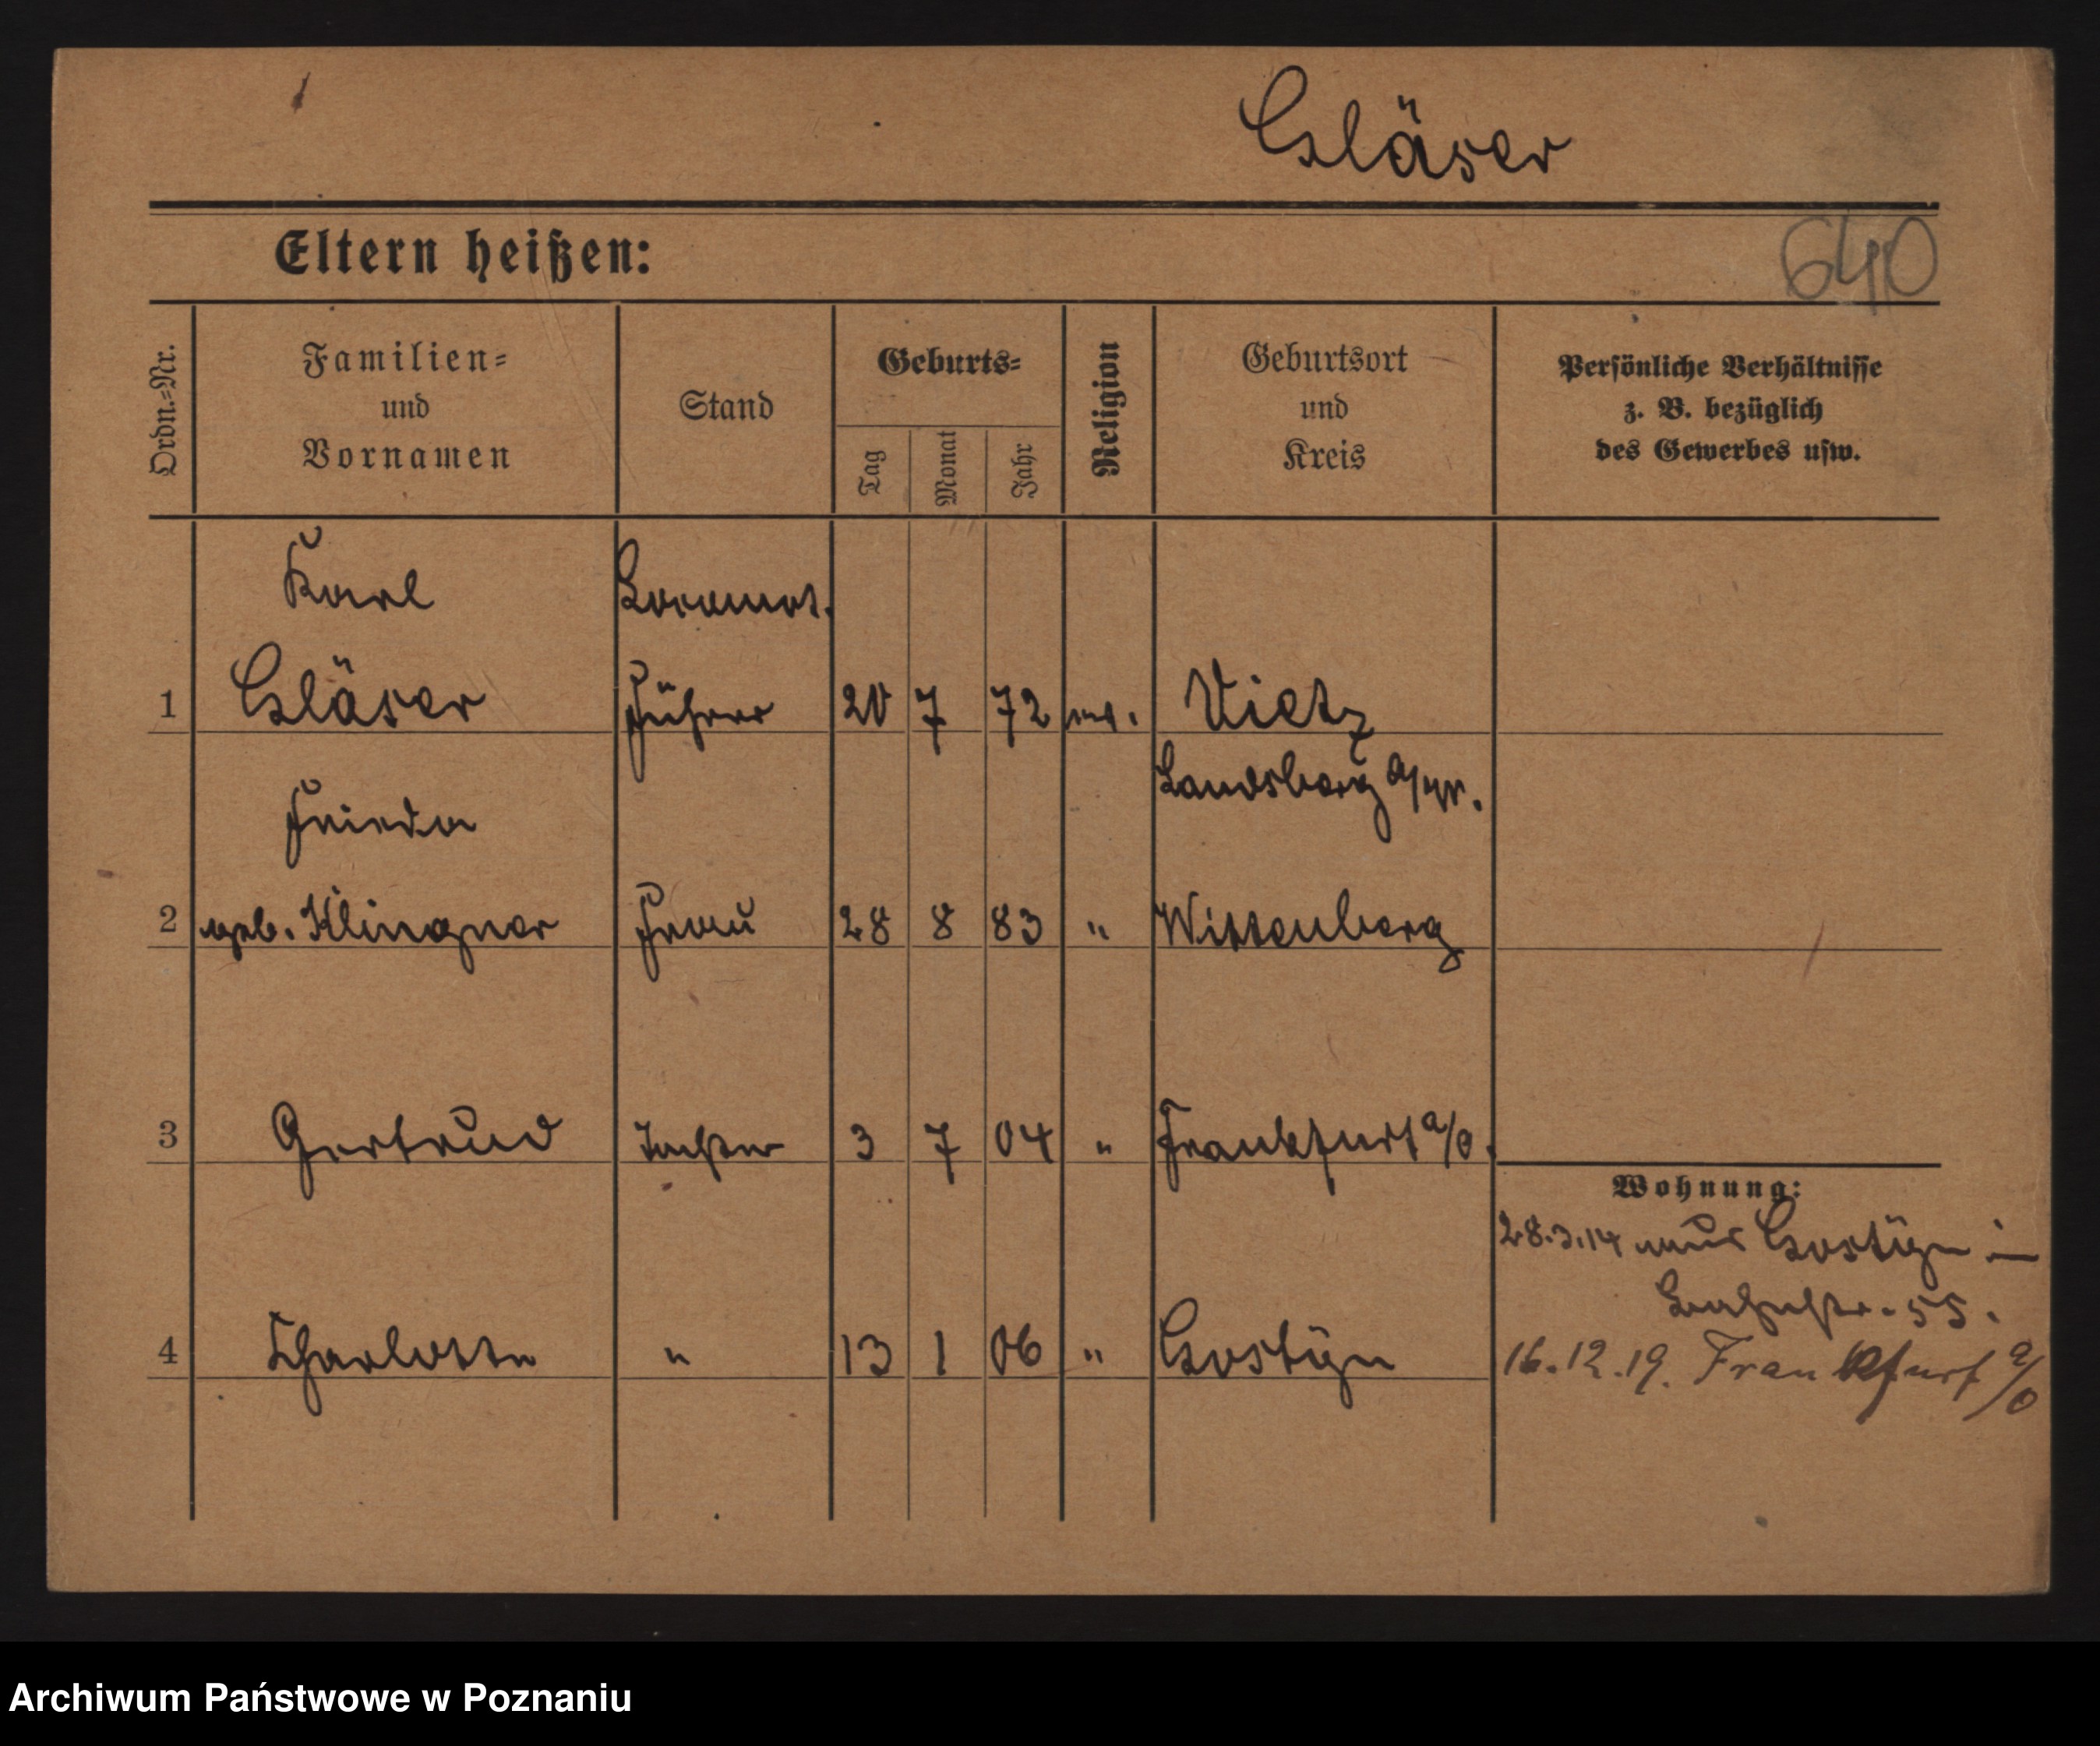 Gläser
Eltern heißen:
640
Ordn.=Nr.
Familien=
und
Vornamen
Stand
Geburts=
Tag
Monat
Jahr
Religion
Geburtsort
und
Kreis
Persönliche Verhältnisse
z. B. bezüglich
des Gewerbes usw.
Karl
Locomot.
1 Gläser Führer 20 7 72 ev. Vietz
Landsberg a/W.
Frieda
2 geb. Klingner Frau 28 8 83 " Wittenberg
3 Gertrud Tochter 3 7 04 " Frankfurt a/O.
Wohnung:
28.3.14 aus Gostyn in
55.
4 Charlotte " 13 1 06 " Gostyn
16.12.19. Frankfurt a/O
Archiwum Państwowe w Poznaniu